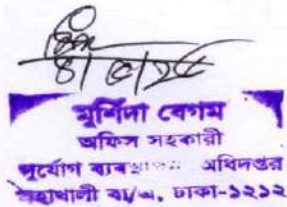 মুর্শিদা বেগম
অফিস সহকারী
দুর্যোগ ব্যবস্থাপনা অধিদপ্তর
মহাখালী বা/এ, ঢাকা-১২১২